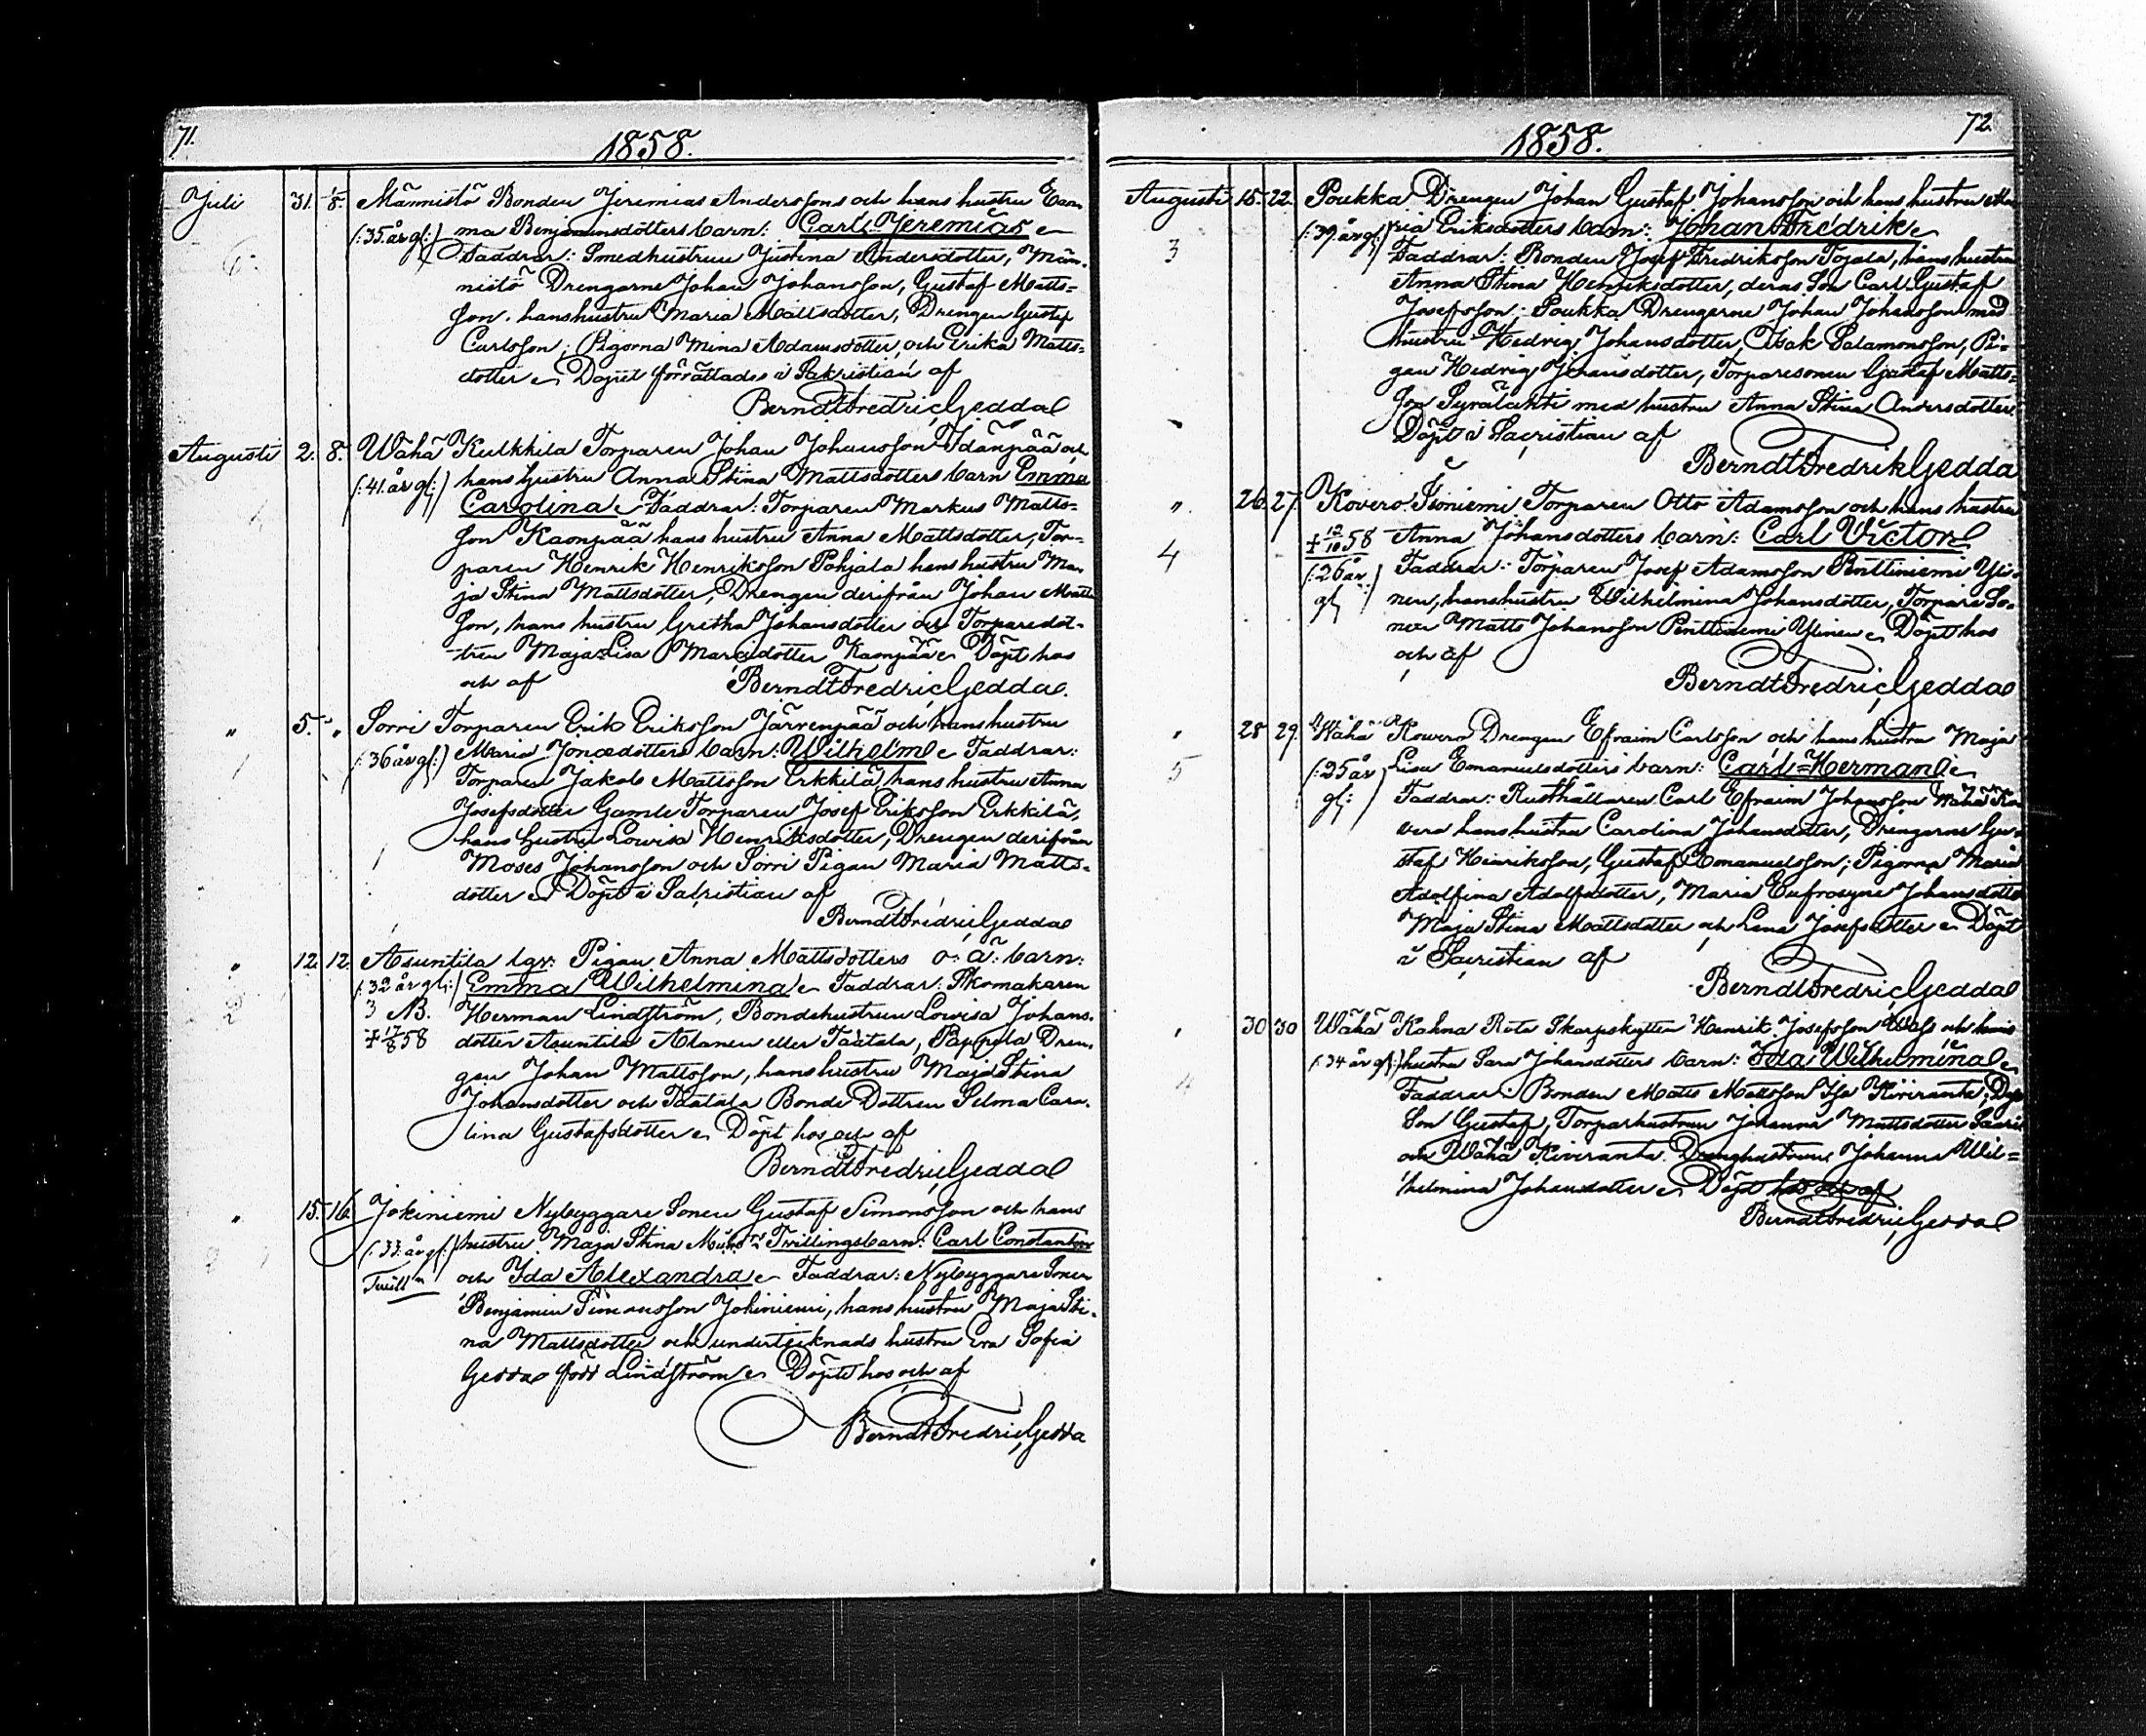 71.
1858.
Juli 31. 1/8. Männistö Bonden Jeremias Anderssons och hans hustru Em=
(:35 år gl:) ma Benjaminsdotters barn: Carl Jeremias
Faddrar: Smedhustrun Justina Andersdotter, Män=
nistö Drengarne Johan Johansson, Gustaf Matts=
son, hans hustru Maria Mattsdotter, Drengen Gustaf
Carlsson; Pigorna Mina Adamsdotter, och Erika Matts=
dotter Dopet förrättades i Sakristian af
Berndt Fredric Gedda
Augusti 2. 8. Wähä Keikkila Torparen Johan Johansson Idänpää och
(:41 år gl:) hans hustru Anna Stina Mattsdotters barn Emma
Carolina Faddrar: Torparen Markus Matts=
son Kaonpää hans hustru Anna Mattsdotter, Tor=
paren Henrik Henriksson Pohjala hans hustru Ma=
ja Stina Mattsdotter, Drengen derifrån Johan Matts
son, hans hustru Gretha Johansdotter och Torparedot=
tren Maja Lisa Marcsdotter Kaonpää Döpt hos
och af Berndt Fredric Gedda.
" 5. " Sorri Torparen Erik Eriksson Järvenpää och hans hustru
(:36 år gl:) Maria Jonædotters barn: Wilhelm Faddrar:
Torparen Jakob Mattsson Erkkilä, hans hustru Anna
Josefsdotter Gamle Torparen Josef Eriksson Erkkilä,
hans hustru Lowisa Henriksdotter, Drengen derifrån
Moses Johansson och Sorri Pigan Maria Matts=
dotter Döpt i Sacristian af
Berndt Fredric Gedda
" 12. 12. Asuntila lgr: Pigan Anna Mattsdotters o. ä. barn:
(:32 år gl:) Emma Wilhelmina Faddrar: Skomakaren
3 NB. Herman Lindström, Bondehustrun Lowisa Johans=
+ 17/8 58 dotter Asuntila Alanen eller Taatala, Pappila Dren=
gen Johan Mattsson, hans hustru Maja Stina
Johansdotter och Taatala Bonde Dottren Selma Caro=
lina Gustafsdotter Döpt hos och af
Berndt Fredric Gedda
" 15. 16. Jokiniemi Nybyggare Sonen Gustaf Simonsson och hans
(:33 år gl:) hustru Maja Stina Tvillingsbarn: Carl Constantin
Tvill och Ida Alexandra Faddrar: Nybyggare Sonen
Benjamin Simonsson Jokiniemi, hans hustru Maja Sti=
na Mattsdotter och undertecknads hustru Eva Sofia
Gedda född Lindström Döpte hos och af
Berndt Fredric Gedda
72.
1858.
Augusti 15. 22. Poukka Drengen Johan Gustaf Johansson och hans hustru Ma=
3 (:39 år gl:) ria Eriksdotters barn: Johan Fredrik
Faddrar: Bonden Josef Fredriksson Tojala, hans hustru
Anna Stina Henriksdotter, deras Son Carl Gustaf
Josefsson; Poukka Drengarne Johan Johansson med
hustru Hedvig Johansdotter, Isak Salamonsson, Pi=
gan Hedvig Johansdotter, Torparesonen Gustaf Matts=
son Syrälahti med hustru Anna Stina Andersdotter.
Döpt i Sacristian af
Berndt Fredrik Gedda
" 26. 27. Kovero Isoniemi Torparen Otto Adamsson och hans hustru
+ 12/10 58 Anna Johansdotters barn: Carl Victor
4 (:26 år gl:) Faddrar: Torparen Josef Adamsson Penttiniemi Yli=
nen, hans hustru Wilhelmina Johansdotter, Torpare So=
nen Matts Johansson Penttiniemi Ylinen Döpt hos
och af
Berndt Fredric Gedda
" 28 29. Wähä Kovero Drengen Efraim Carlsson och hans hustru Maja
5 (:25 år gl:) Lisa Emanuelsdotters barn: Carl=Herman
Faddrar: Rusthållaren Carl Efraim Johansson Wähä Ko
vero hans hustru Carolina Johansdotter, Drengarne Gu=
staf Henriksson, Gustaf Emanuelsson; Pigorna Maria
Adolfina Adolfsdotter, Maria Eufrosyne Johansdotter
Maja Stina Mattsdotter och Lena Josefsdotter Döpt
i Sacristian af
Berndt Fredric Gedda
" 30 30 Wähä Kahna Rote Skarpskytten Henrik Josefsson Wass och hans
(:34 år gl:) hustru Sara Johansdotters barn: Ida Wilhelmina
4 Faddrar: Bonden Matts Mattsson Iso Kiviranta,
Son Gustaf, Torparhustrun Johanna Mattsdotter Saari
och Wähä Kiviranta Drenghustrun Johanna Wil=
helmina Johansdotter Döpt hos och af
Berndt Fredric Gedda